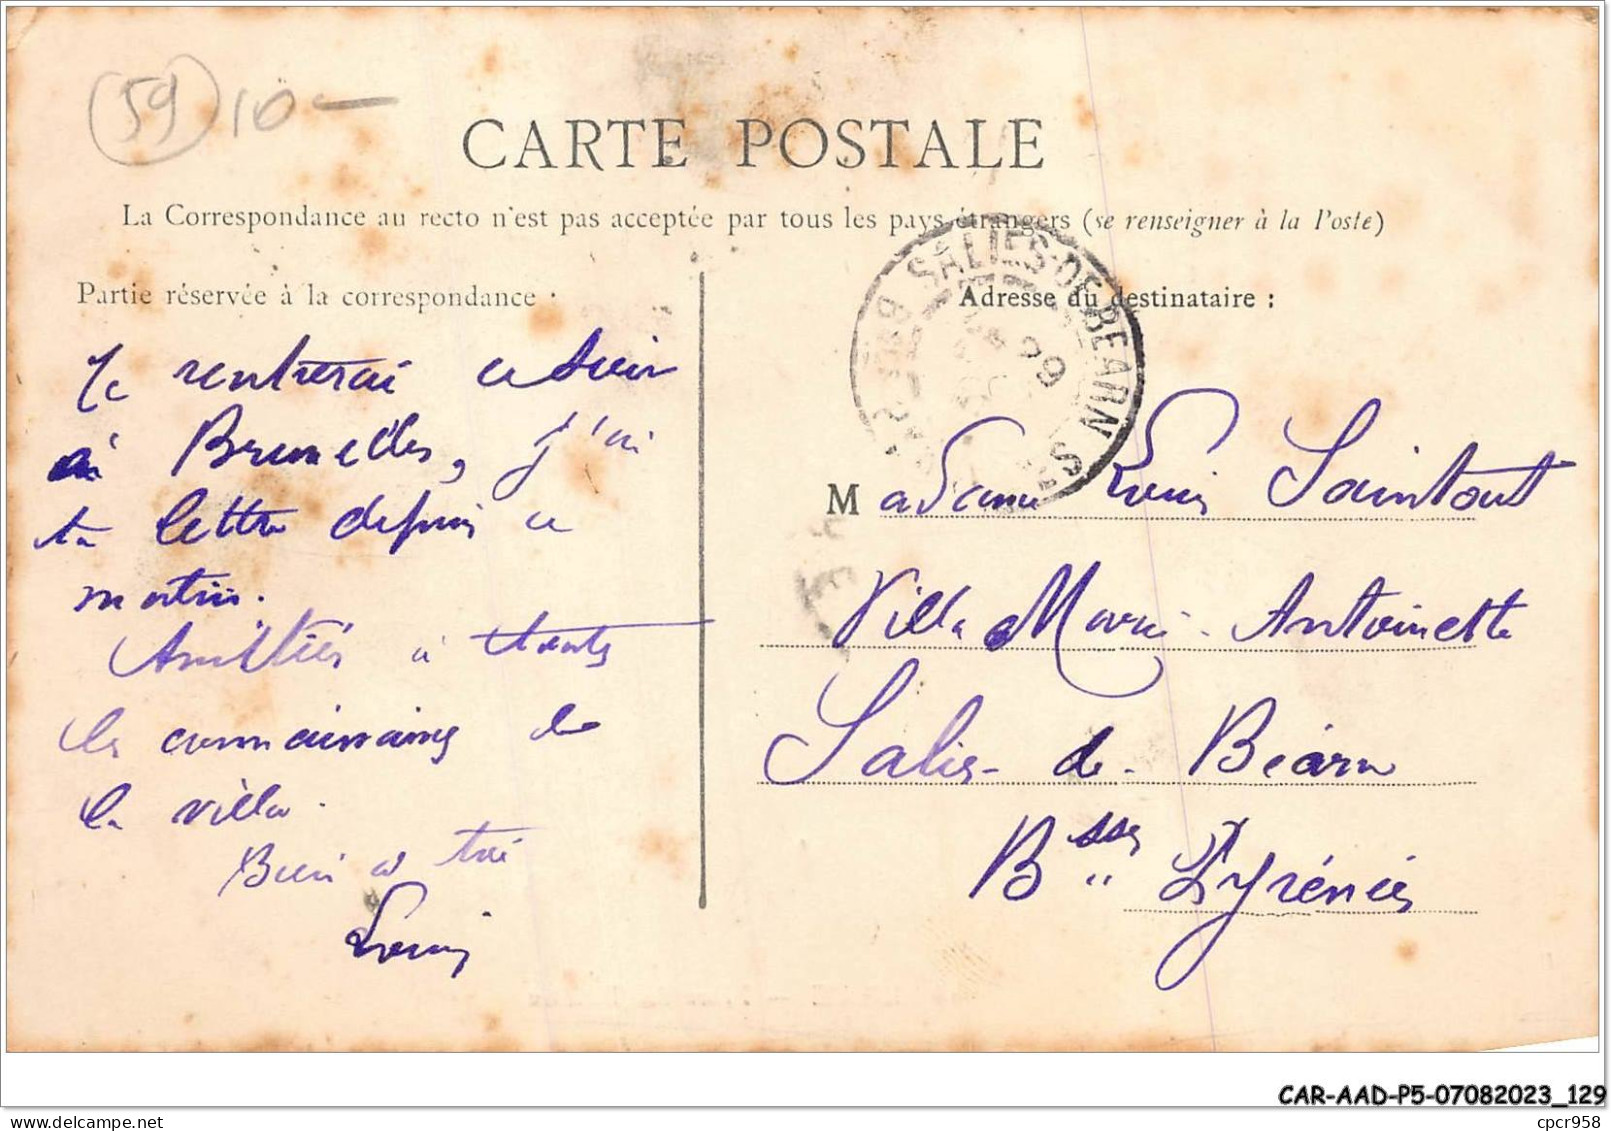 59 10 —
CARTE POSTALE
La Correspondance au recto n'est pas acceptée par tous les pays étrangers (se renseigner à la Poste)
Partie réservée à la correspondance :
Je rentrerai ce soir
à Bruxelles, j'ai
ta lettre depuis ce
matin.
Amitiés à toutes
les connaissances de
la villa.
Bien à toi
Louis
SALIES-DE-BEARN
Adresse du destinataire :
Madame Louis Saintout
Villa Marie-Antoinette
Salies-de-Béarn
Bsses Pyrénées
CAR-AAD-P5-07082023_129
cpcr958